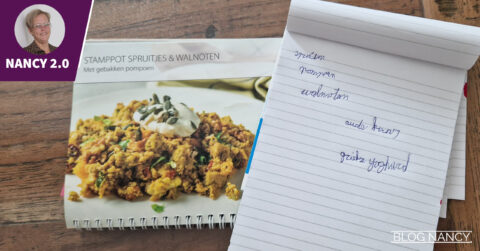 NANCY 2.0
STAMPPOT SPRUITJES & WALNOTEN
Met gebakken pompoen
spruiten
pompoen
walnoten
oude kaas
griekse yoghurt
BLOG NANCY